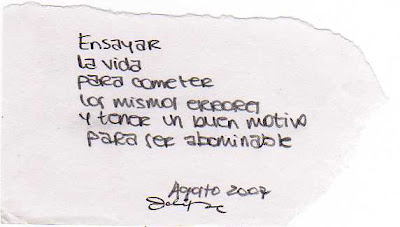 Ensayar
la vida
para cometer
los mismos errores
y tener un buen motivo
para ser abominable
Agosto 2007